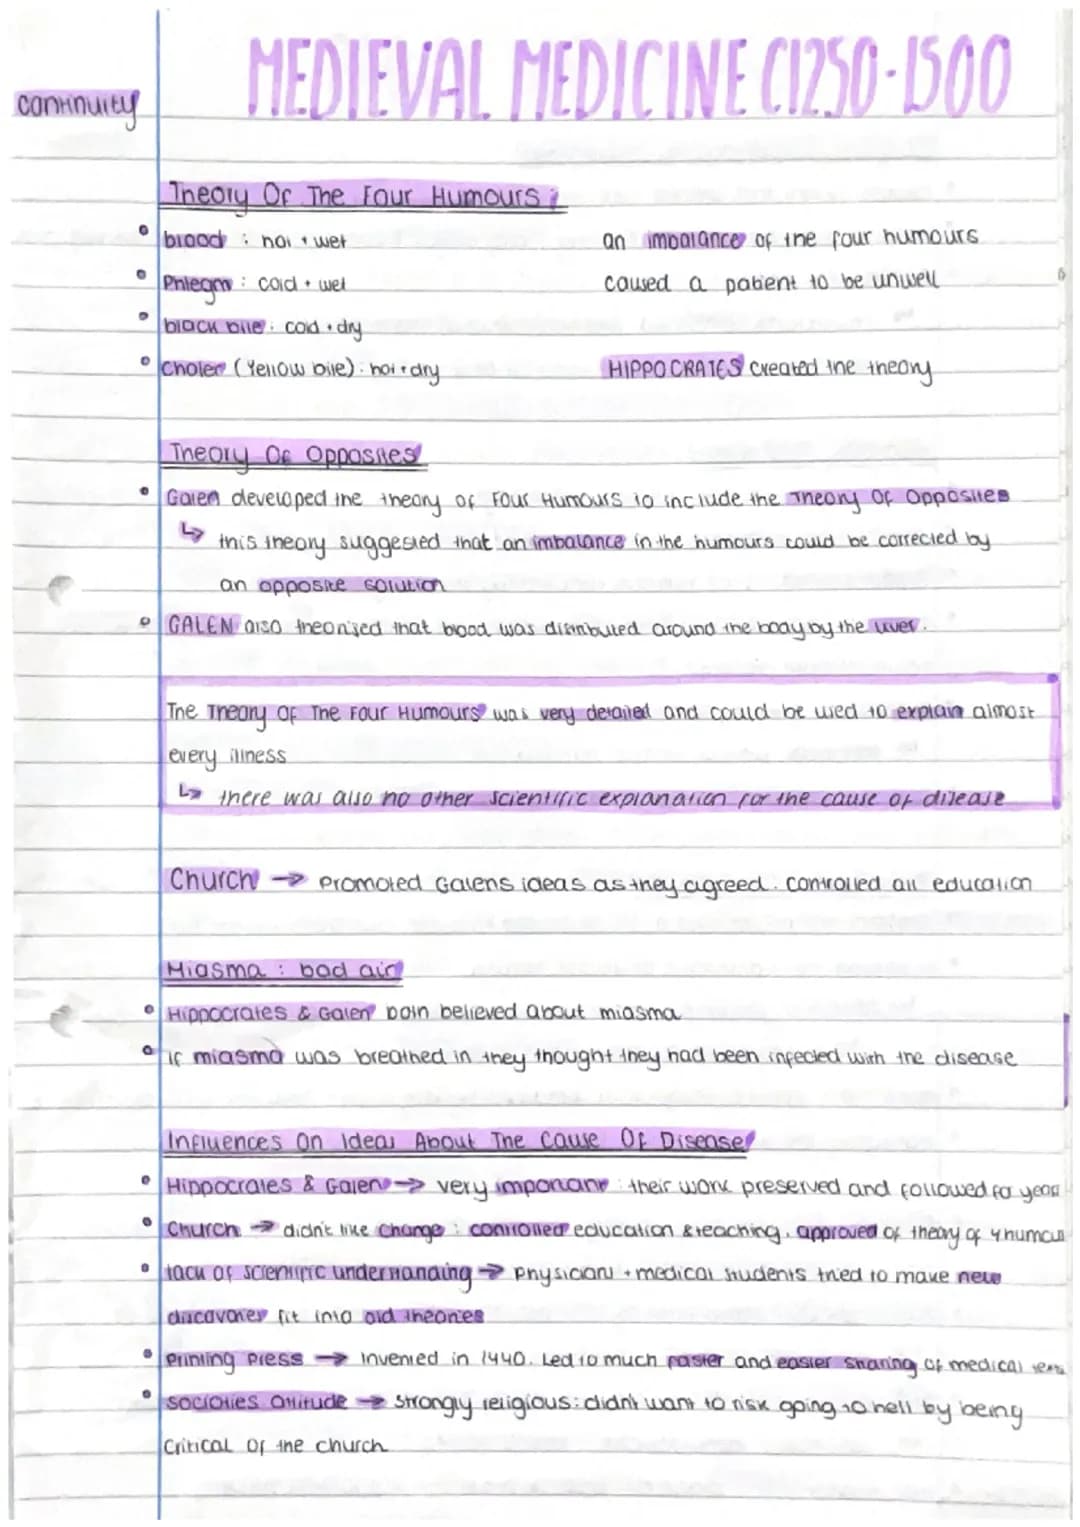 MEDIEVAL MEDICINE C1250-1500
continuity
Theory Of The Four Humours:
blood: hot + wet
an imbalance of the four humours
Phlegm: cold + wet
caused a patient to be unwell
black bile: cold + dry
Choler (Yellow bile): hot + dry
HIPPOCRATES created the theory
Theory Of Opposites
Galen developed the theory of Four Humours to include the Theory Of Opposites
↳ this theory suggested that an imbalance in the humours could be corrected by
an opposite solution
GALEN also theorised that blood was distributed around the body by the liver.
The Theory Of The Four Humours was very detailed and could be used to explain almost
every illness
↳ there was also no other scientific explanation for the cause of disease
Church → Promoted Galens ideas as they agreed. controlled all education
Miasma: bad air
Hippocrates & Galen both believed about miasma
if miasma was breathed in they thought they had been infected with the disease
Influences On Ideas About The Cause Of Disease
Hippocrates & Galen → very important: their work preserved and followed for years
Church → didn't like change: controlled education & teaching, approved of theory of 4 humours
lack of scientific understanding → Physicians + medical students tried to make new
discoveries fit into old theories
Printing Press → Invented in 1440. Led to much faster and easier sharing of medical texts
Societies attitude → Strongly religious: didn't want to risk going to hell by being
critical of the church